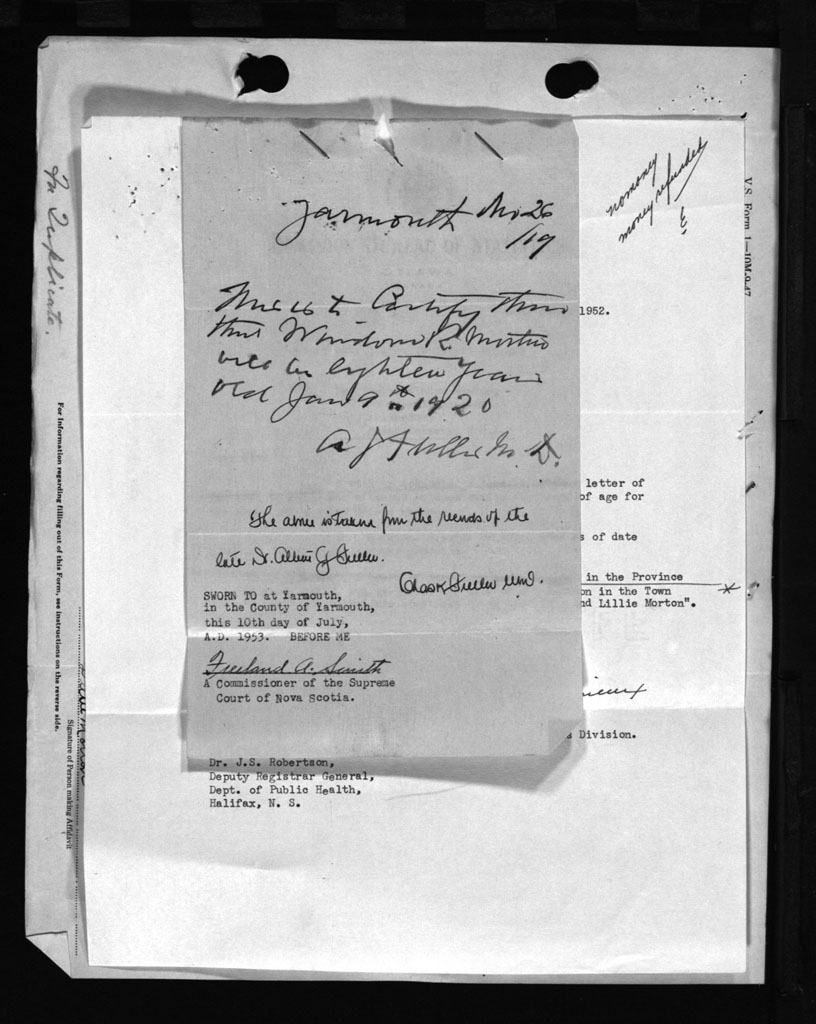 Yarmouth Nov 26
/19
This is to Certify
that R. Morton
will be eighteen years
old Jan 9th 1920
A J Fuller M.D.
The above is taken from the records of the
late Dr. Albert J. Fuller.
Fuller M.D.
SWORN TO at Yarmouth,
in the County of Yarmouth,
this 10th day of July,
A.D. 1953. BEFORE ME
Freeland A. Smith
A Commissioner of the Supreme
Court of Nova Scotia.
no money
money refunded
1952.
letter of
of age for
s of date
in the Province
on in the Town
nd Lillie Morton".
Division.
Dr. J.S. Robertson,
Deputy Registrar General,
Dept. of Public Health,
Halifax, N. S.
In Duplicate.
For Information regarding filling out of this Form, see instructions on the reverse side.
Signature of Person making Affidavit
V.S. Form 1—10M-9-47